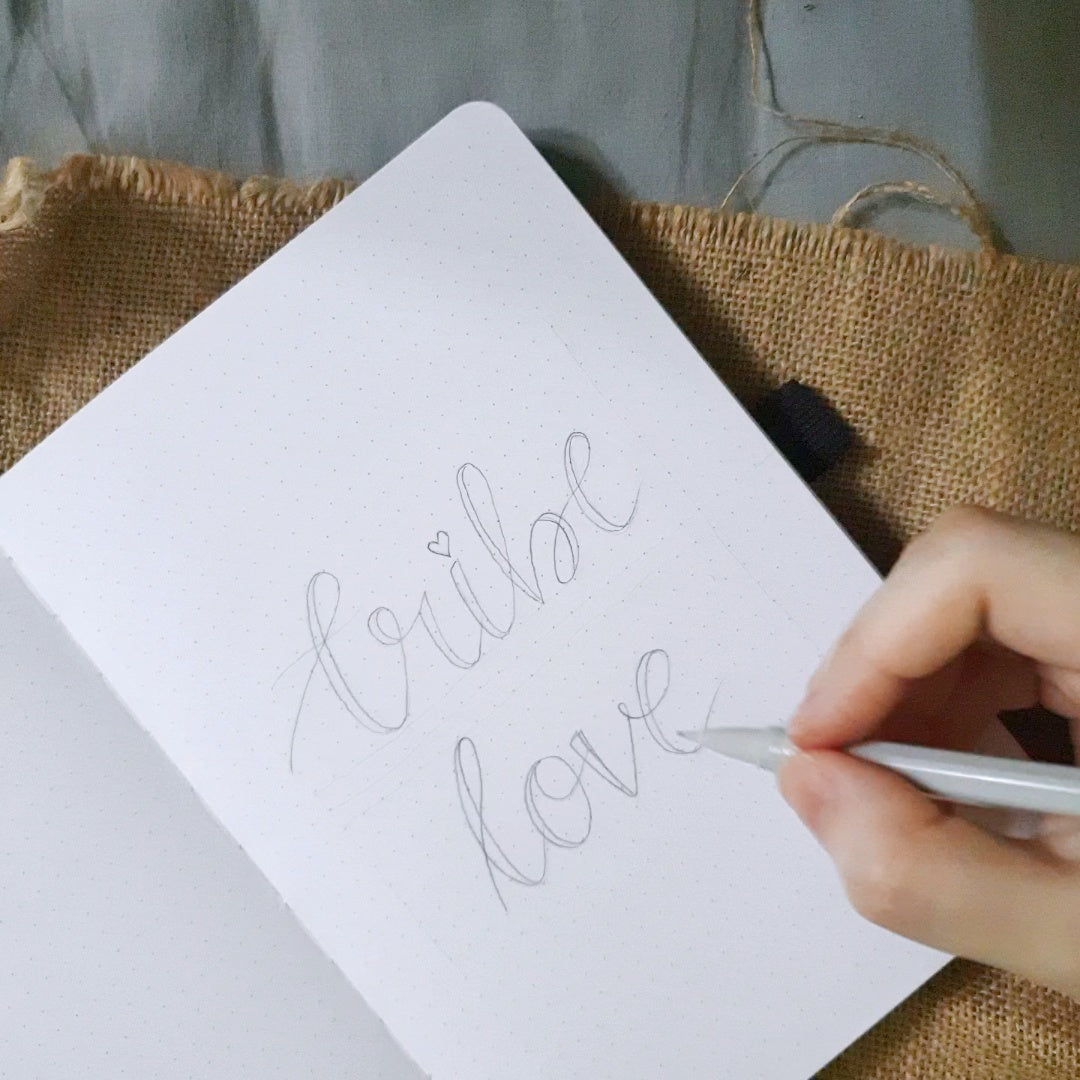 tribe
love